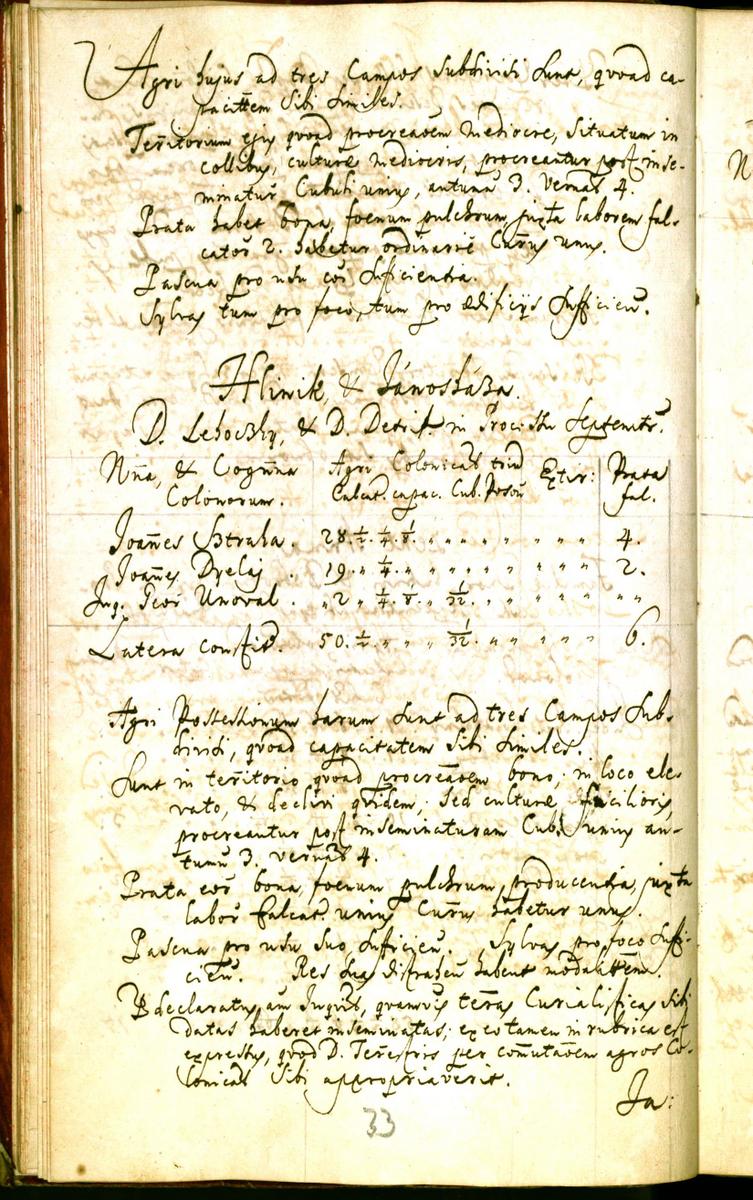 Agri hujus ad tres Campos subdivisi sunt, quoad ca-
pacittem sibi similes.
Territorium ejus quoad procreaōem mediocre, situatum in
collibus, culturæ mediocris, procreantur post inse-
minatur Cubuli unius, autumn 3. vernas 4.
Prata habet bona, foenum pulchrum juxta laborem fal-
cator 2. habetur ordinarie Currus unus.
Pascua pro usu eor sufficientia.
Sylvas tum pro foco, tum pro ædificijs sufficien.
Hlinik, & Jánosháza.
D. Lehoczky, & D. Detrik in Processu
Nn̄a, & Cogn̄na
Colonorum.
Agri Colonicales
Cubul. capac. Cub. Poson
Extir:
Prata
fal.
Joan̄es Straka . 28. ½. ¼. ⅛. „ „ „ „ „ „ „ 4.
Joan̄es Dzelaj . 19. „ ¼. „ „ „ „ „ „ „ „ 2.
Inq. Unoval . „ 2 „ ¼. ⅛. „ 1/32. „ „ „ „ „ „
Latera consti. 50. ½. „ „ „ 1/32. „ „ „ „ „ 6.
Agri Possessionum harum sunt ad tres Campos sub-
divisi, quoad capacitatem sibi similes.
Sunt in territorio quoad procreaōem bono, in loco ele-
vato, & declivi quidem, sed culturæ facilioris,
procreantur post inseminaturam Cubuli unius au-
tumn 3. vernas 4.
Prata eor bona, foenum pulchrum producentia, juxta
labor falcat. unius Currus habetur unus.
Pascua pro usu suo sufficien. Sylvas pro foco suffi-
cien. Res suas distrahen habent modalittem.
declaratus, am Inquis, quamvis terras Curialisticas sibi
datas haberet inseminatas; ex eo tamen in rubrica est
expressus, quod D. Terrestris per com̄utaōem agros Co-
lonicales sibi appropriaverit.
Ja:
33